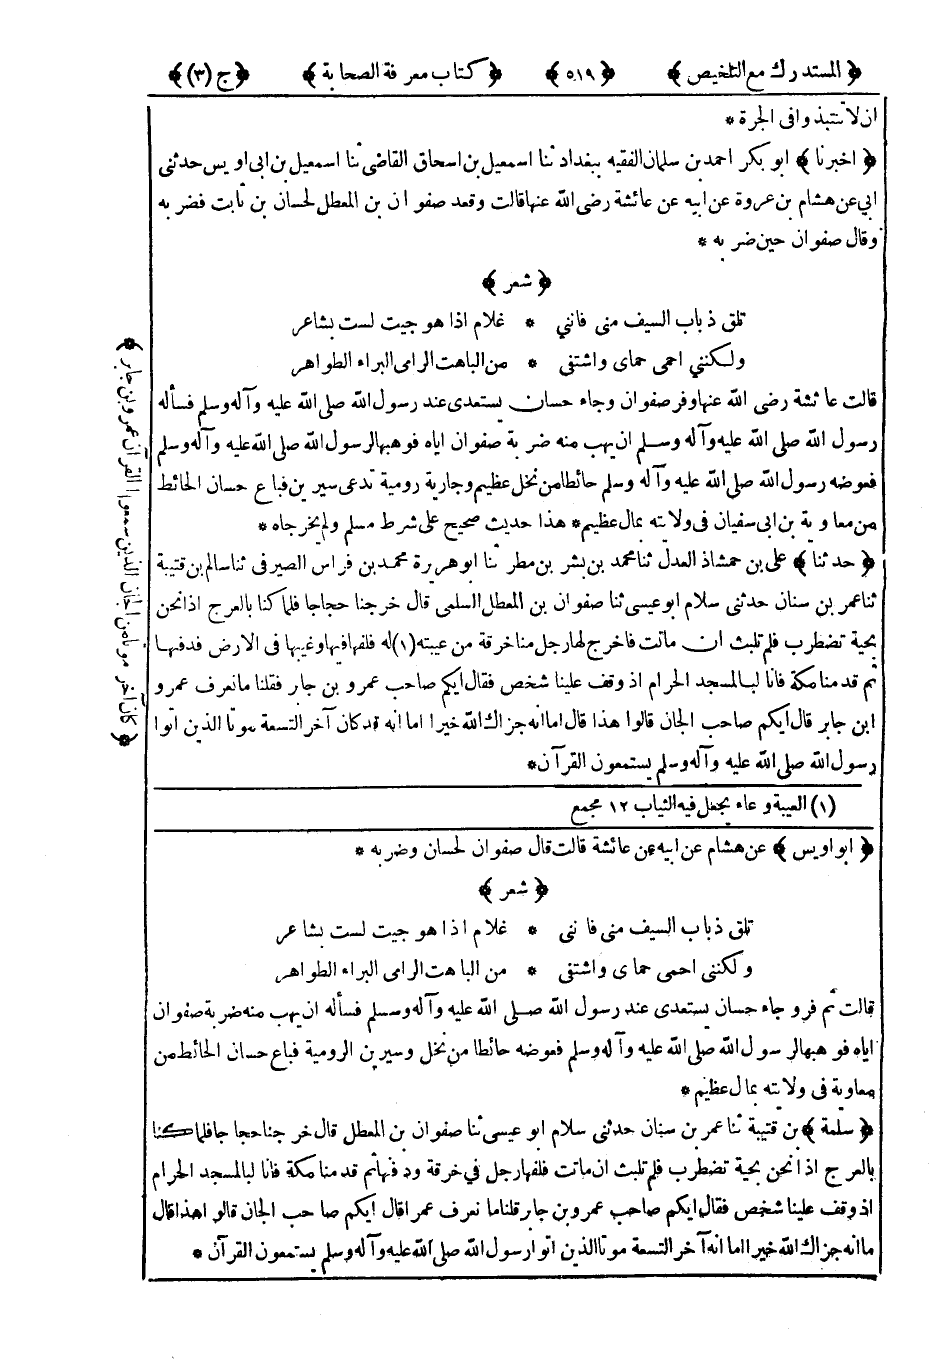 ﴿ المستدرك مع التلخيص ﴾ ﴿ ٥١٩ ﴾ ﴿ كتاب معرفة الصحابة ﴾ ﴿ ج (٣) ﴾
ان لا تنتبذوا فى الجرة *
﴿ اخبرنا ﴾ ابو بكر احمد بن سلمان الفقيه ببغداد ثنا اسمعيل بن اسحاق القاضى ثنا اسمعيل بن ابى اويس حدثنى
ابي عن هشام بن عروة عن ابيه عن عائشة رضى الله عنها قالت وقعد صفوان بن المعطل لحسان بن ثابت فضربه
وقال صفوان حين ضربه *
﴿ شعر ﴾
تلق ذباب السيف منى فانني * غلام اذا هوجيت لست بشاعر
ولكنني احمى حماى واشتفى * من الباهت الرامى البراء الطواهر
قالت عائشة رضى الله عنها وفر صفوان وجاء حسان يستعدى عند رسول الله صلى الله عليه وآله وسلم فسأله
رسول الله صلى الله عليه وآله وسلم ان يهب منه ضربة صفوان اياه فوهبها لرسول الله صلى الله عليه وآله وسلم
فعوضه رسول الله صلى الله عليه وآله وسلم حائطا من نخل عظيم وجارية رومية تدعى سيرين فباع حسان الحائط
من معاوية بن ابى سفيان فى ولايته بمال عظيم * هذا حديث صحيح على شرط مسلم ولم يخرجاه *
﴿ حدثنا ﴾ على بن حمشاذ العدل ثنا محمد بن بشر بن مطر ثنا ابو هريرة محمد بن فراس الصيرفى ثنا سالم بن قتيبة
ثنا عمر بن سنان حدثنى سلام ابو عيسى ثنا صفوان بن المعطل السلمى قال خرجنا حجاجا فلما كنا بالعرج اذا نحن
بحية تضطرب فلم تلبث ان ماتت فاخرج لها رجل منا خرقة من عيبته (١) له فلفها فيها وغيبها فى الارض فدفنها
ثم قدمنا مكة فانا لبالمسجد الحرام اذ وقف علينا شخص فقال ايكم صاحب عمرو بن جابر فقلنا ما نعرف عمرو
ابن جابر قال ايكم صاحب الجان قالوا هذا قال اما انه جزاك الله خيرا اما انه قد كان آخر التسعة موتا الذين اتوا
رسول الله صلى الله عليه وآله وسلم يستمعون القرآن *
﴿ كان آخر موتاه من الجان الذين سمعوا القرآن عمرو بن جابر ﴾
(١) العيبة وعاء يجعل فيه الثياب ١٢ مجمع
﴿ ابو اويس ﴾ عن هشام عن ابيه عن عائشة قالت قال صفوان لحسان وضربه *
﴿ شعر ﴾
تلق ذباب السيف منى فاننى * غلام اذا هوجيت لست بشاعر
ولكننى احمى حماى واشتفى * من الباهت الرامى البراء الطواهر
قالت ثم فر وجاء حسان يستعدى عند رسول الله صلى الله عليه وآله وسلم فسأله ان يهب منه ضربة صفوان
اياه فوهبها لرسول الله صلى الله عليه وآله وسلم فعوضه حائطا من نخل وسيرين الرومية فباع حسان الحائط من
معاوية فى ولايته بمال عظيم *
﴿ سلمة ﴾ بن قتيبة ثنا عمر بن سنان حدثنى سلام ابو عيسى ثنا صفوان بن المعطل قال خرجنا حجاجا فلما كنا
بالعرج اذا نحن بحية تضطرب فلم تلبث ان ماتت فلفها رجل في خرقة ودفنها ثم قدمنا مكة فانا لبالمسجد الحرام
اذ وقف علينا شخص فقال ايكم صاحب عمرو بن جابر قلنا ما نعرف عمرا قال ايكم صاحب الجان قالوا هذا قال
ما انه جزاك الله خيرا اما انه آخر التسعة موتا الذين اتوا رسول الله صلى الله عليه وآله وسلم يستمعون القرآن *